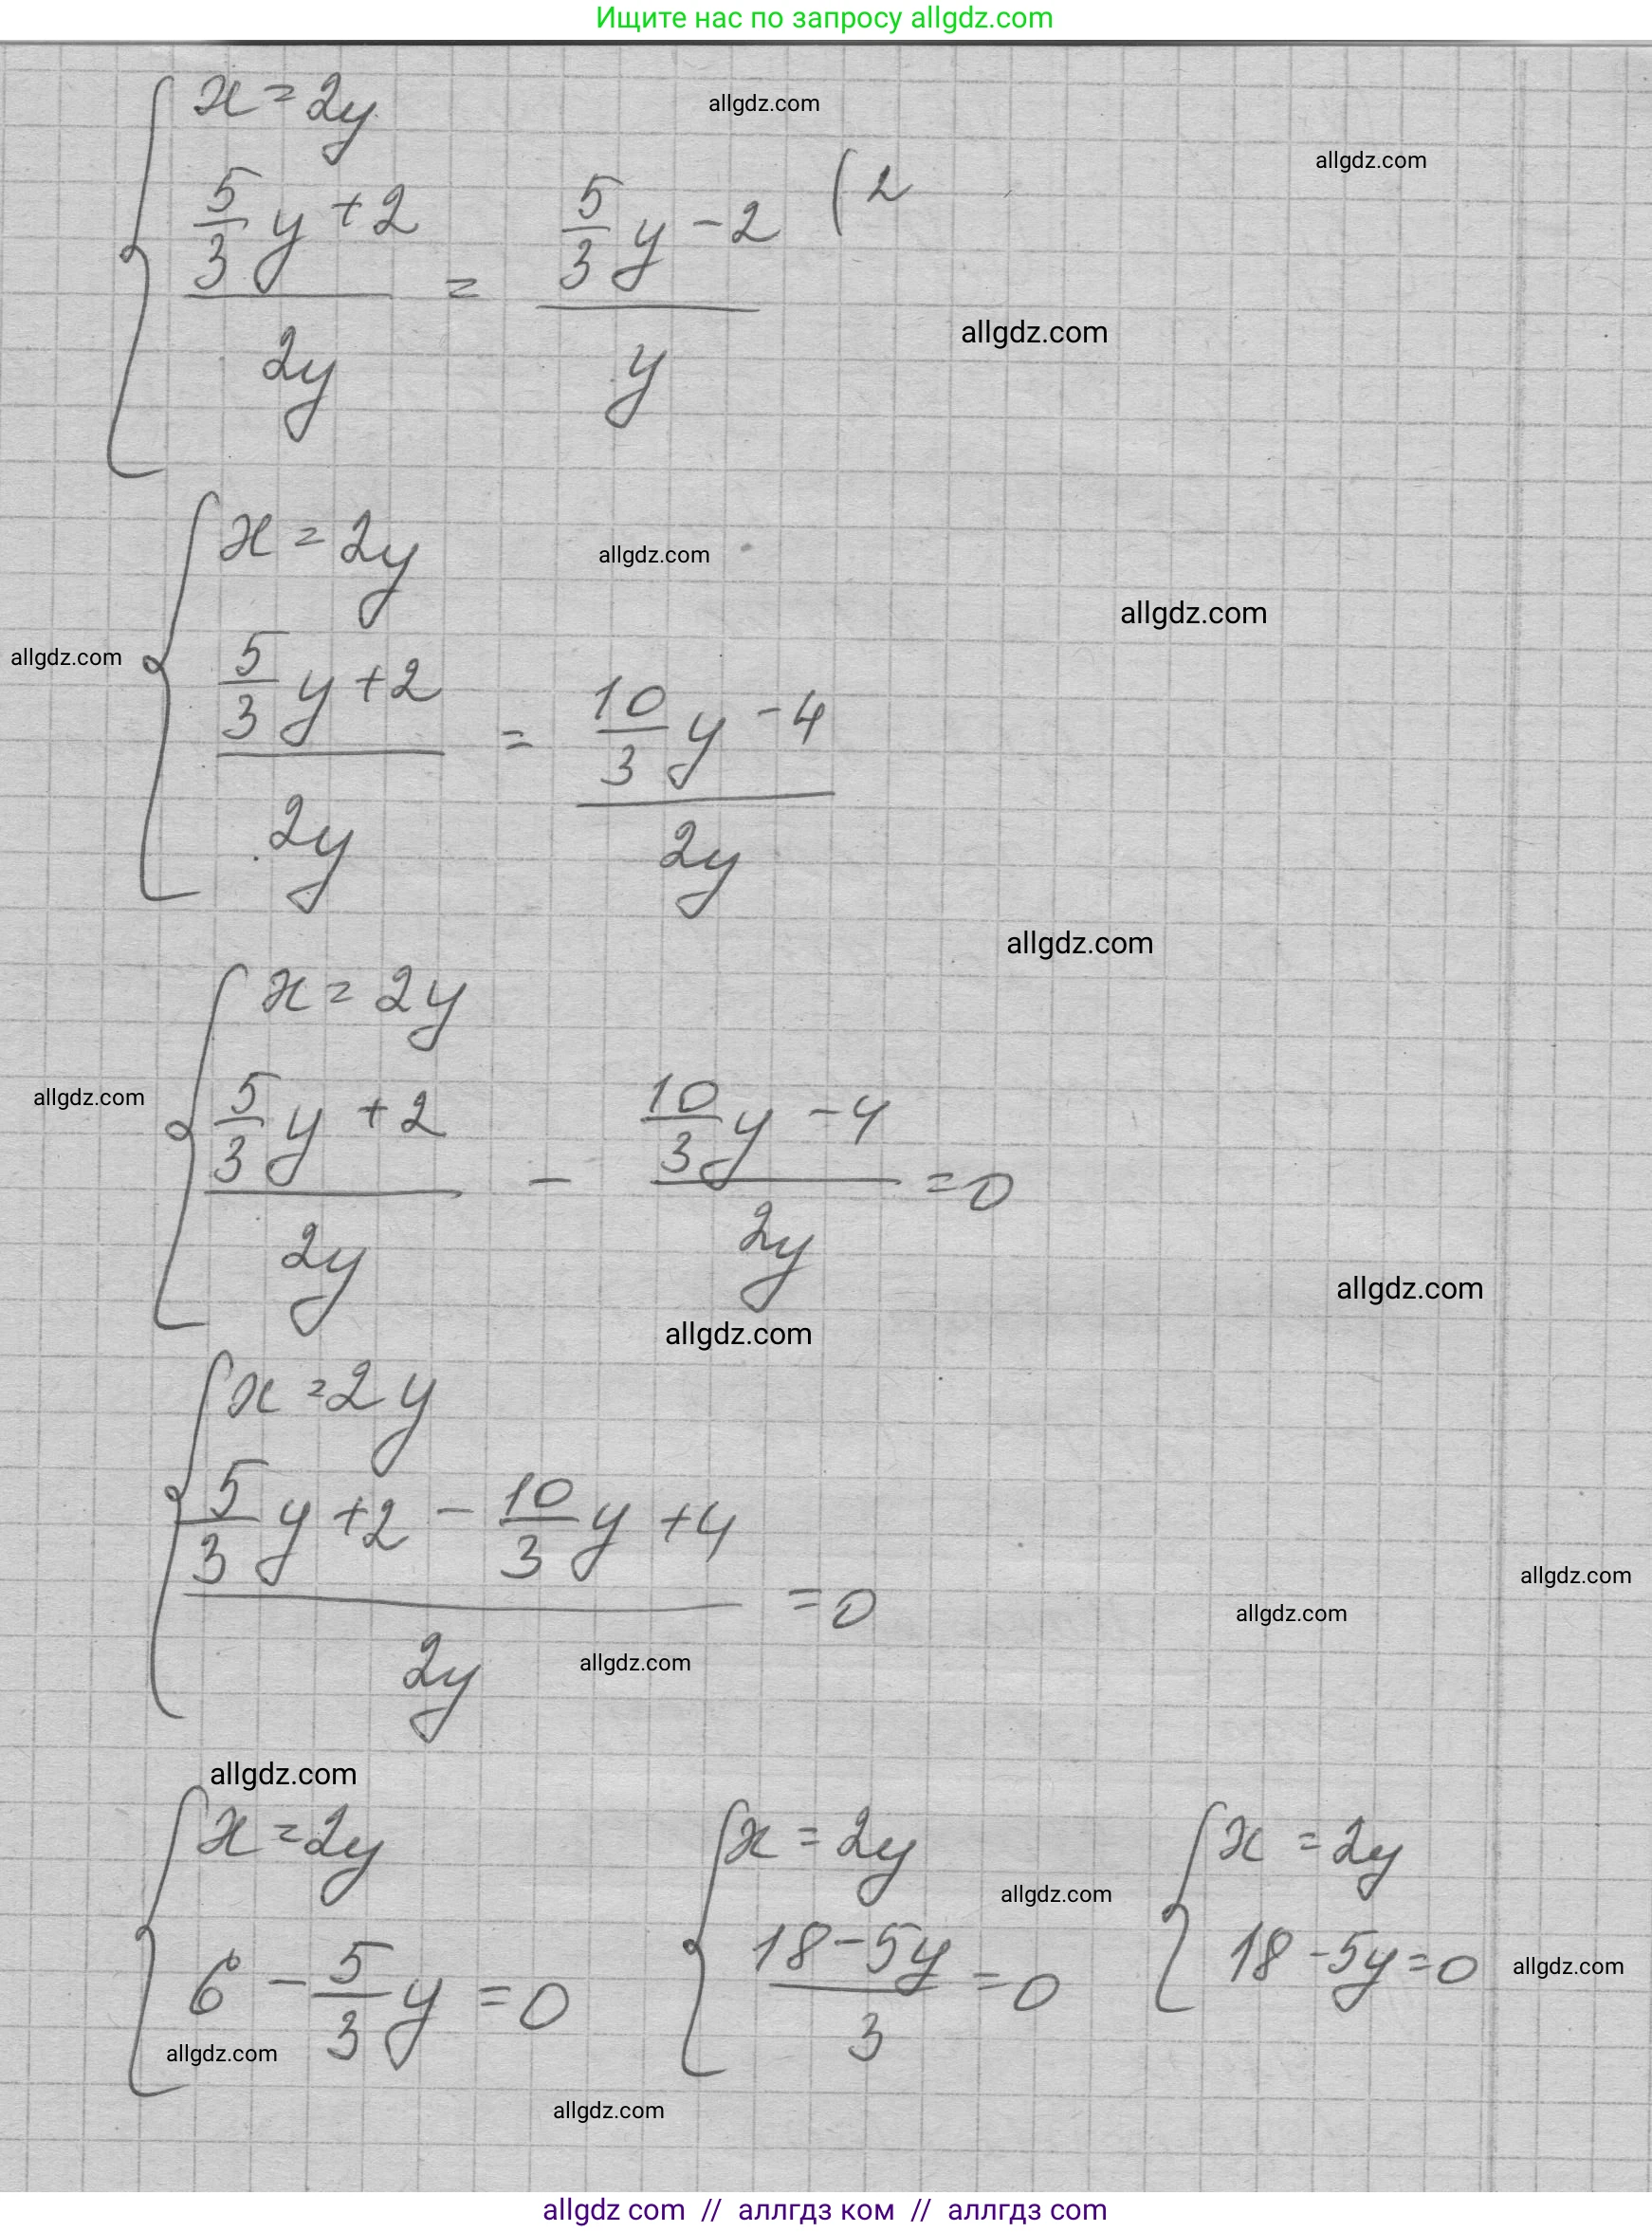 Ищите нас по запросу allgdz.com
x = 2y
allgdz.com
allgdz.com
(5/3 y + 2) / 2y = (5/3 y - 2) / y (2
allgdz.com
x = 2y
allgdz.com
allgdz.com
allgdz.com
(5/3 y + 2) / 2y = (10/3 y - 4) / 2y
allgdz.com
x = 2y
allgdz.com
(5/3 y + 2) / 2y - (10/3 y - 4) / 2y = 0
allgdz.com
allgdz.com
x = 2y
(5/3 y + 2 - 10/3 y + 4) / 2y = 0
allgdz.com
allgdz.com
allgdz.com
allgdz.com
x = 2y x = 2y x = 2y
allgdz.com
6 - 5/3 y = 0 (18 - 5y) / 3 = 0 18 - 5y = 0
allgdz.com
allgdz.com
allgdz.com
allgdz com // аллгдз ком // аллгдз com